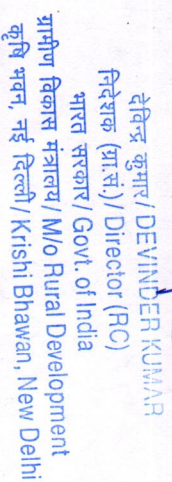 देविन्द्र कुमार / DEVINDER KUMAR
निदेशक (प्रा.सं.) / Director (RC)
भारत सरकार / Govt. of India
ग्रामीण विकास मंत्रालय / M/o Rural Development
कृषि भवन, नई दिल्ली / Krishi Bhawan, New Delhi